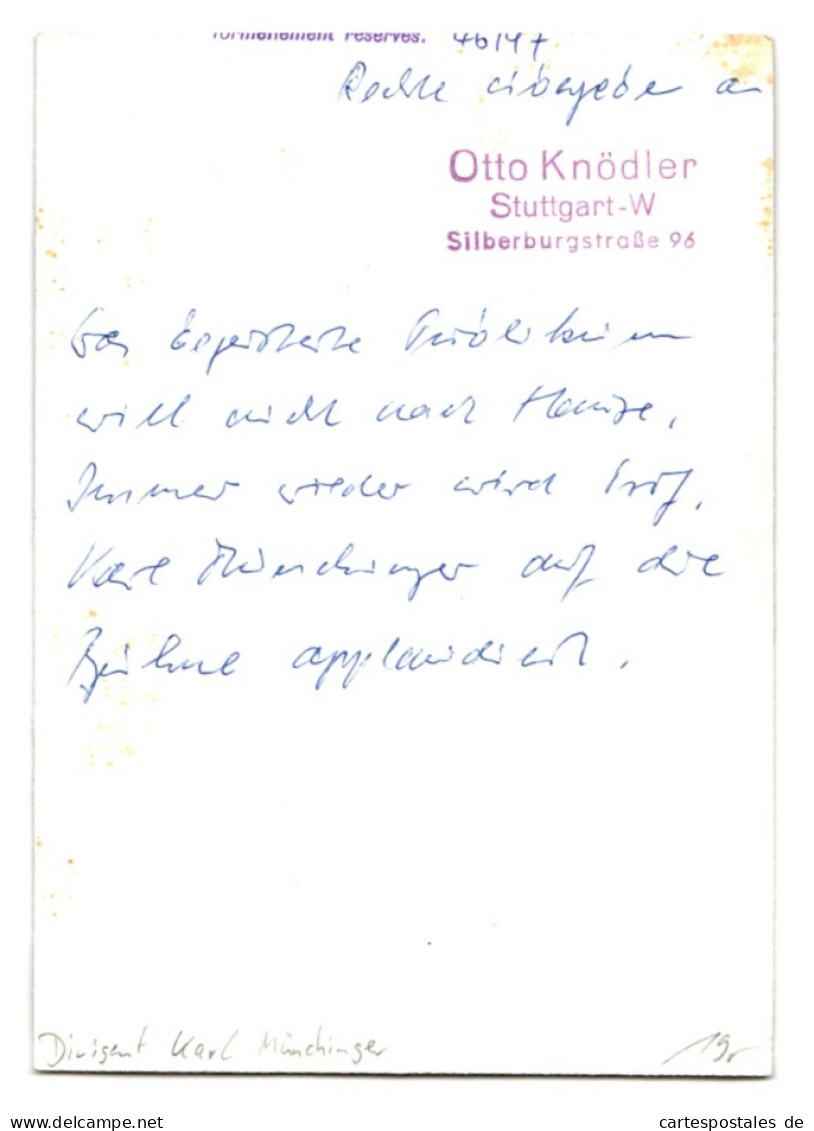 formellement reserves. 46147
Rechte übergeben an
Otto Knödler
Stuttgart-W
Silberburgstraße 96
Das begeisterte Publikum
will nicht nach Hause,
Immer wieder wird Prof.
Karl Münchinger auf die
Bühne applaudiert.
Dirigent Karl Münchinger
19,-
www.delcampe.net
cartespostales de